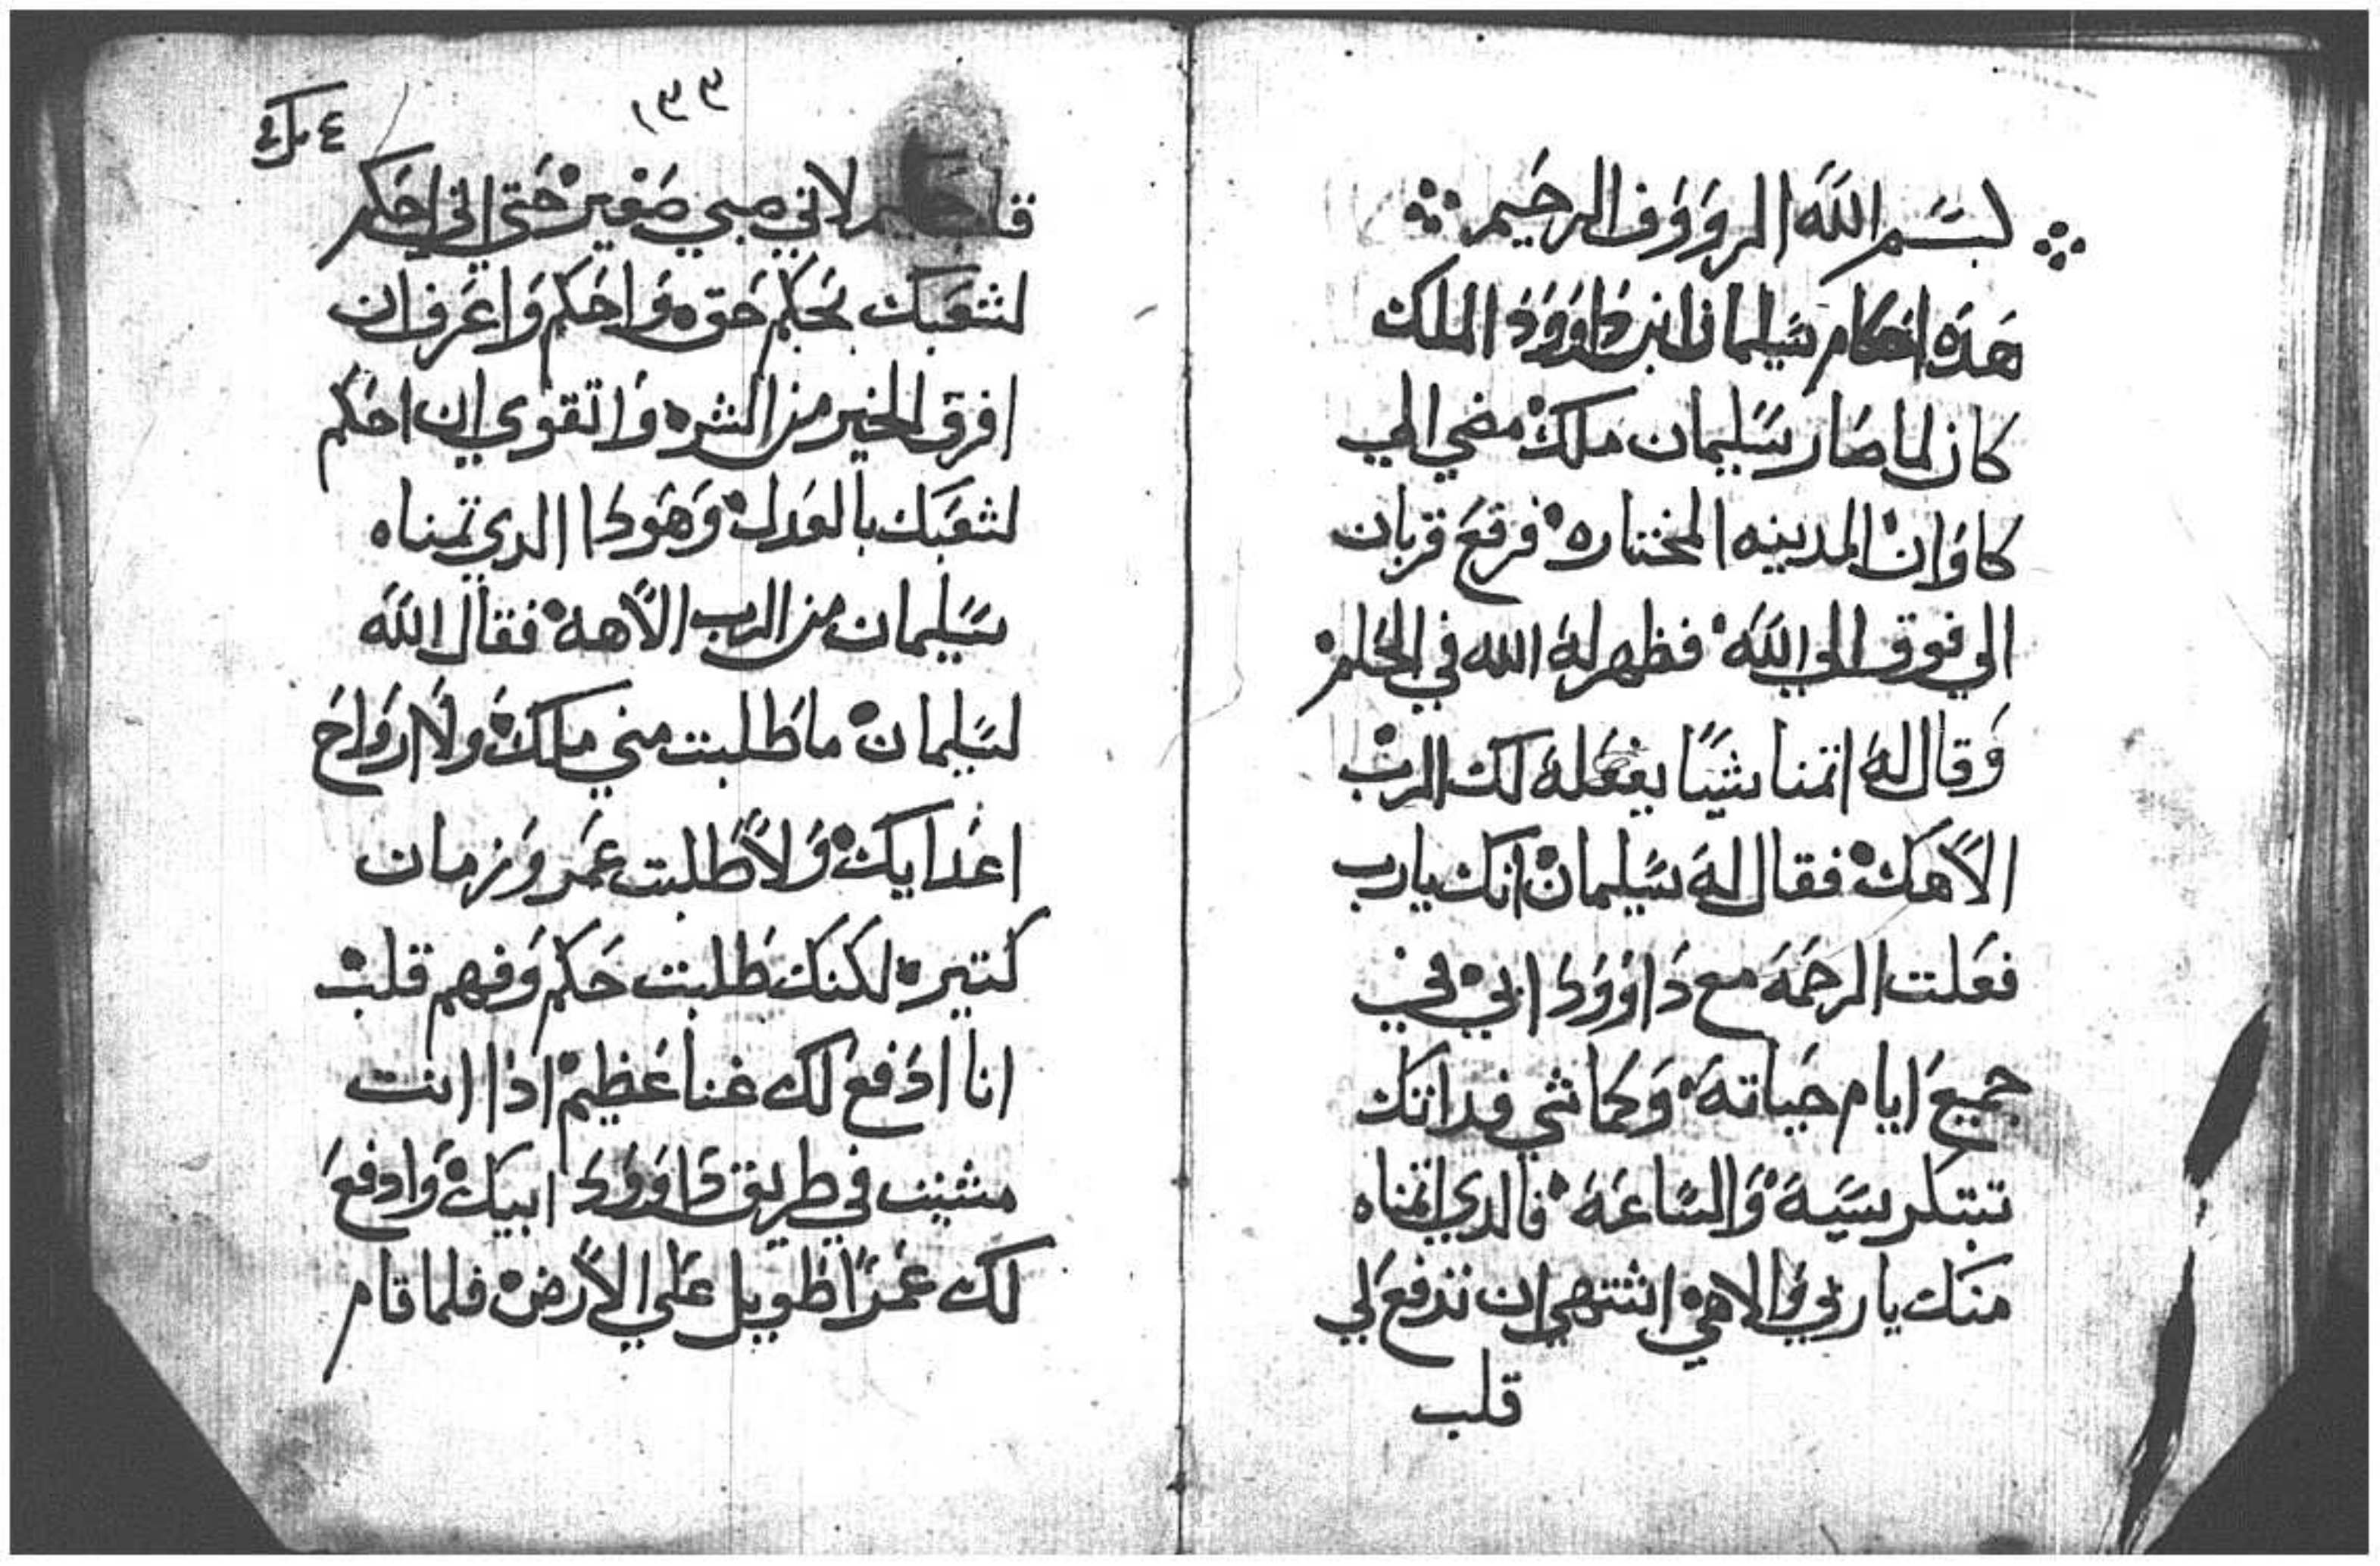 بسم الله الرووف الرحيم
هذه احكام سليمان ابن داوود الملك
كان لما صار سليمان ملك مضي الي
كاوان المدينه المختاره فرفع قربان
الي فوق الي الله فظهر له الله في الحلم
وقال له اتمنا شيا يفعله لك الرب
الاهك فقال له سليمان انك يارب
فعلت الرحمه مع داوود ابي في
جميع ايام حياته وكما شي فداتك
سيه والساعه فالدي اتمناه
منك ياربي والاهي اشتهي ان تدفع لي
قلب
١٩٩
لاني صبي صغير حتي اني احكم
لشعبك بحكم حق واحكم واعرف ان
افرق الخير من الشر واتقوي ان احكم
لشعبك بالعدل وهودا الدي تمناه
سليمان من الرب الاهه فقال الله
لسليمان ما طلبت مني ملك ولا ارواح
اعدايك ولا طلبت عمر وزمان
كتير لكنك طلبت حكم وفهم قلب
انا ادفع لك غنا عظيم اذا انت
مشيت في طريق داوود ابيك وادفع
لك عمرا طويل علي الارض فلما قام